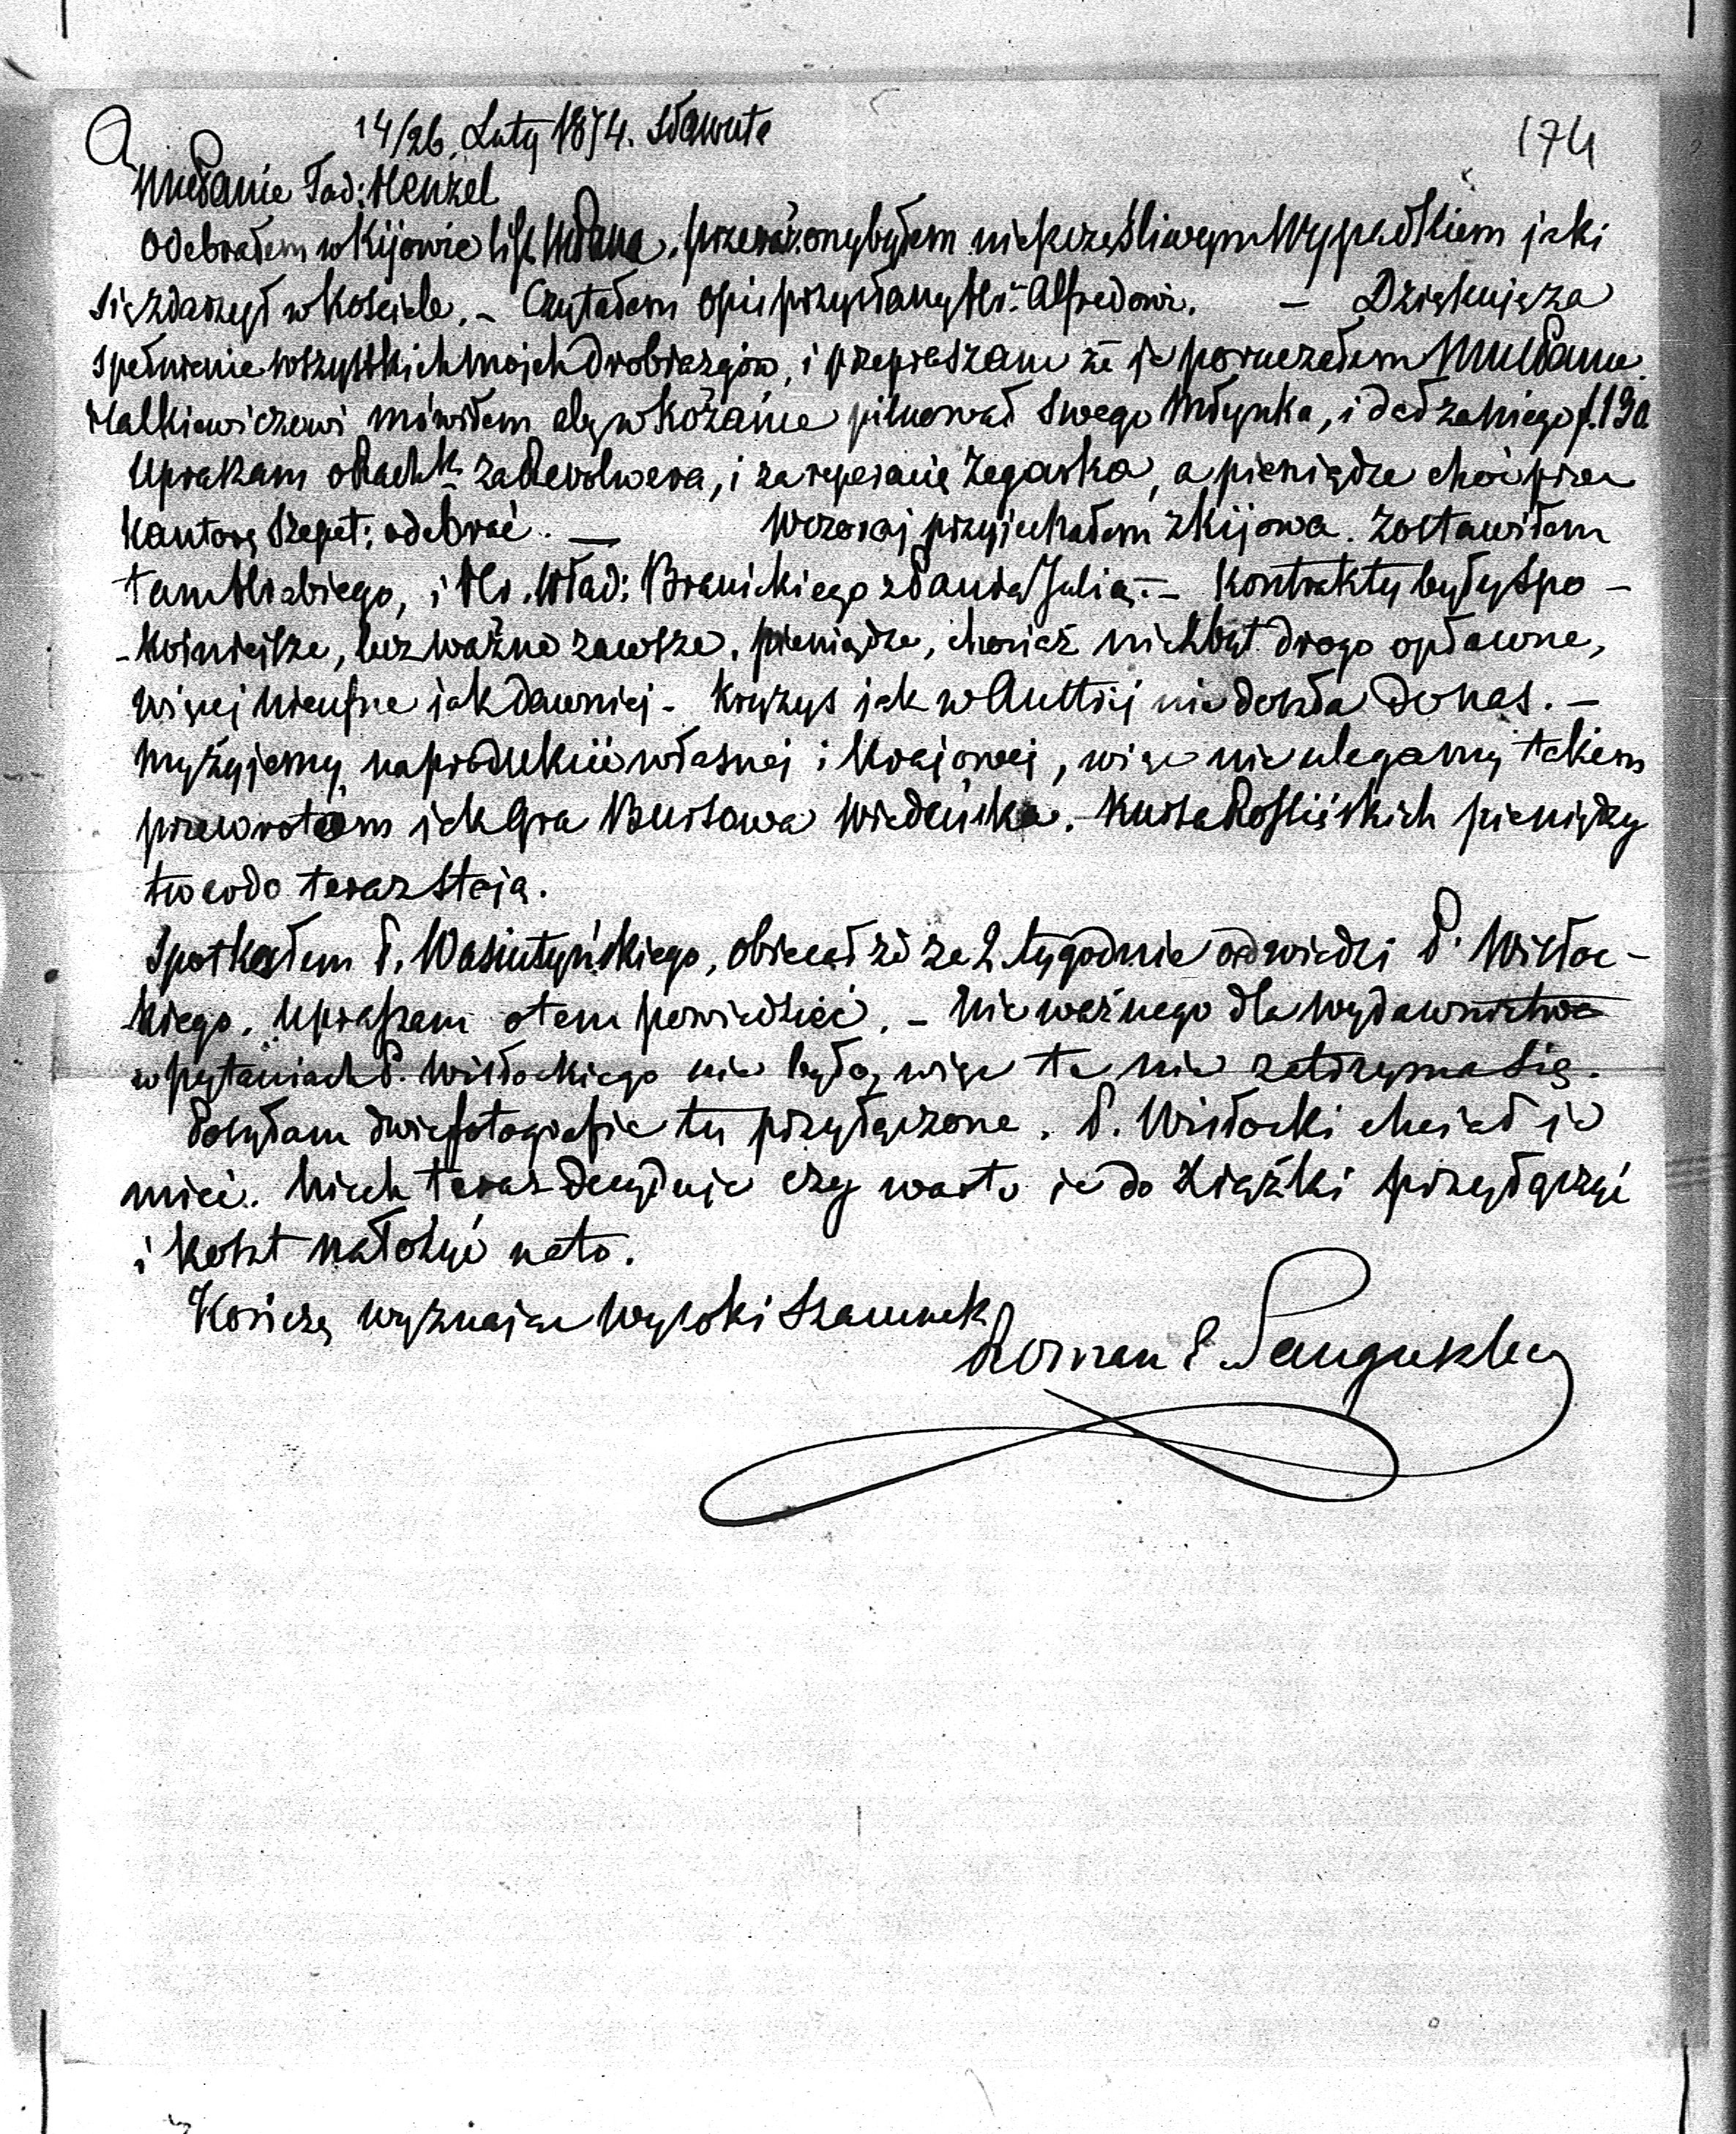 14/26. Luty 1874. Sławuta
174
WMPanie Tad: Henzel
Odebrałem w Kijowie list WPana. przerażony byłem nieszczęśliwym Wypadkiem jaki
się zdarzył w Kościele. – Czytałem opis przysłany Hr: Alfredowi. – Dziękuję za
spełnienie wszystkich moich drobiazgów, i przepraszam że je poruczałem WMPanu.
Malkiewiczowi mówiłem aby w Rożanie pilnował swego Młynka, i dał za niego f. 190
Upraszam o Rachk. za Revolwera, i za reperacię Zegarka, a pieniądze choć przez
Kantorę Szepet: odebrać. — Wczoraj przyjechałem z Kijowa. Zostawiłem
tam Hrabiego, i Hr. Wład: Branickiego z Panią Julią. – Kontrakty były spo-
-kojniejsze, lecz ważne zawsze. pieniądze, chociaż nie zbyt drogo opłacone,
więcej nieufne jak dawniej – Kryzys jak w Austrij nie doszła do nas. –
my żyjemy na produkcii własnej i Krajowej, więc nie ulegamy takiem
przewrotom jak Gra Bursowa Wiedeńska. Kursa Rossijskich pieniędzy
twardo teraz stoją.
Spotkałem P. Wasiutyńskiego, obiecał że za 2 tygodnie odwiedzi P. Wisłoc-
-kiego. Upraszam o tem powiedzieć. – Nic ważnego dla wydawnictwa
w pytaniach P. Wisłockiego nie było, więc te nie zatrzyma się.
Posyłam dwie fotografie tu przyłączone. P. Wisłocki chciał je
mieć. Niech teraz decyduje czy warto je do Książki przyłączyć
i koszt nałożyć na to.
Kończę wyznając Wysoki Szacunek
Roman S Sanguszko